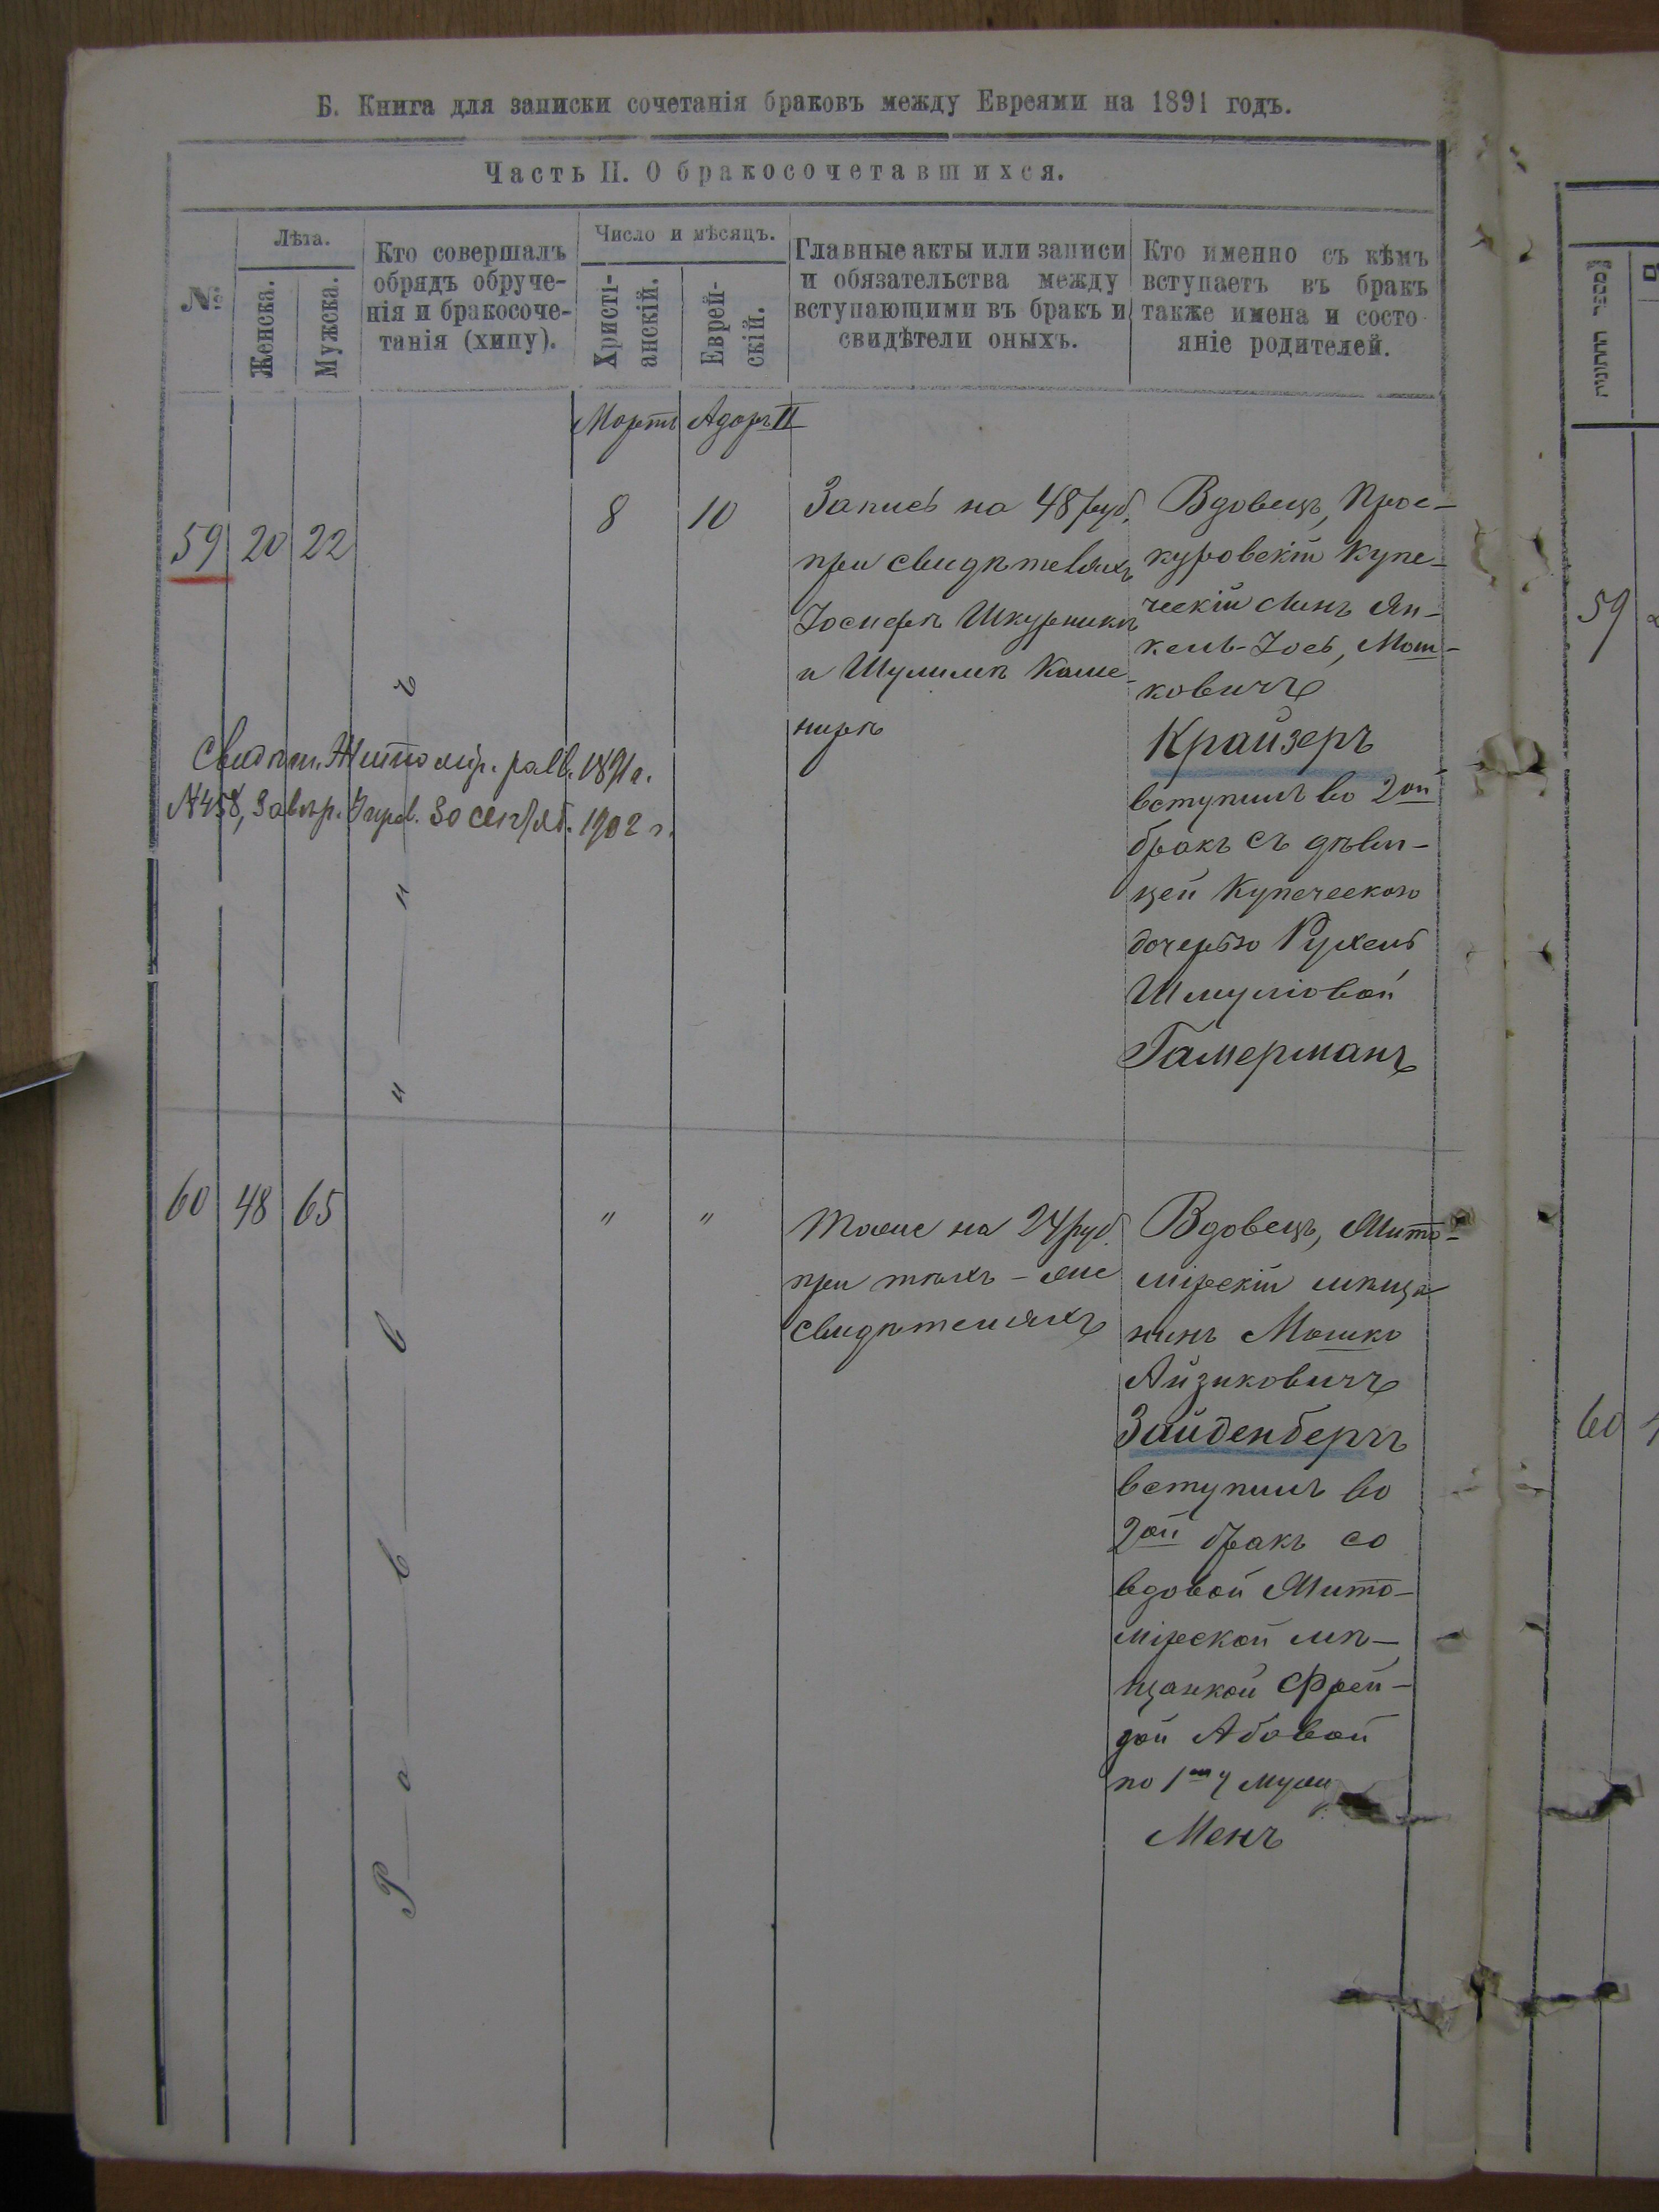 Б. Книга для записки сочетанія браковъ между Евреями на 1891 годъ.
Часть II. О бракосочетавшихся.
№
Лѣта.
Женска.
Мужска.
Кто совершалъ
обрядъ обруче-
нія и бракосоче-
танія (хипу).
Число и мѣсяцъ.
Христі-
анскій.
Еврей-
скій.
Главные акты или записи
и обязательства между
вступающими въ бракъ и
свидѣтели оныхъ.
Кто именно съ кѣмъ
вступаетъ въ бракъ
также имена и состо
яніе родителей.
Мартъ Адаръ II
59 20 22
8 10
Запись на 48 руб.
при свидѣтеляхъ
Іосифѣ Шкурникѣ
и Шулимѣ Каме-
нирѣ
Вдовецъ, Прос-
куровскій купе-
ческій сынъ Ян-
кель-Іось, Мош-
ковичъ
Крайзеръ
вступилъ во 2ой
бракъ съ дѣви-
цей купеческою
дочерью Рухель
Шмулiовой
Гамерманъ
Свидѣт. Житомір. равв. 1891 г.
№458, Завѣр. 30 сентяб. 1902 г.
Раввинъ
60 48 65
" "
Тоже на 24 руб.
при тѣхъ-же
свидѣтеляхъ
Вдовецъ, Жито-
мірскій мѣща
нинъ Мошко
Айзиковичъ
Зайденбергъ
вступилъ во
2ой бракъ со
вдовой Жито-
мірской мѣ-
щанкой Фрей-
дой Абовой
по 1му мужу
Менъ
מספר החתונות
59
60